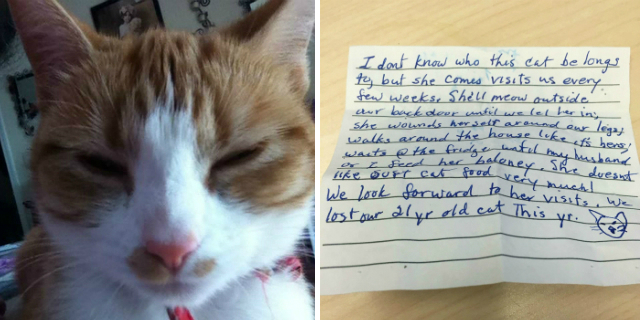 I dont know who this cat belongs
to, but she comes visits us every
few weeks. She'll meow outside
our back door until we let her in;
she wounds herself around our legs,
walks around the house like its hers,
waits @ the fridge until my husband
or I feed her baloney. She doesnt
like our cat food very much!
We look forward to her visits. We
lost our 21 yr old cat This yr.